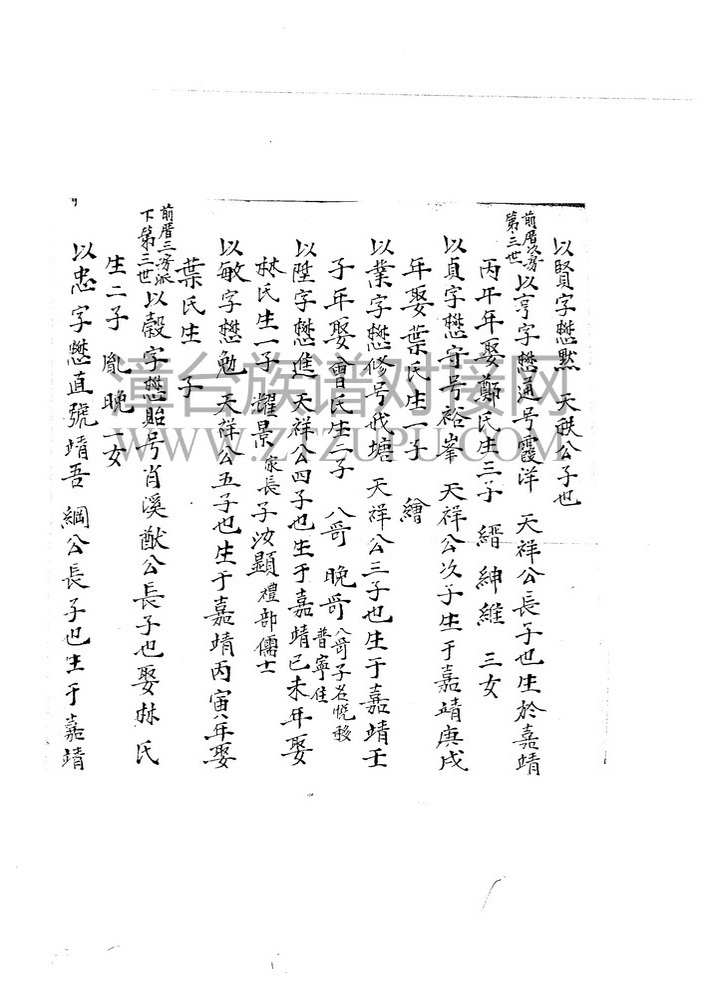 以賢字懋黙 天秩公子也
前厝次房
第三世
以亨字懋通号霞洋 天祥公長子也生於嘉靖
丙午年娶鄭氏生三子 縉紳維 三女
以貞字懋守号裕峯 天祥公次子生于嘉靖庚戌
年娶葉氏生一子 繪
以業字懋修号我塘 天祥公三子也生于嘉靖壬
子年娶曾氏生二子 八哥 晚哥 八哥子名 移
普寧住
以陞字懋進 天祥公四子也生于嘉靖己未年娶
林氏生一子 耀景 家長子汝顯禮部儒士
以敏字懋勉 天祥公五子也生于嘉靖丙寅年娶
葉氏生 子
前厝三房派
下第三世
以穀字懋貽号肖溪猷公長子也娶林氏
生二子 胤 晚 一女
以忠字懋直號靖吾 綱公長子也生于嘉靖
漳台族谱对接网
WWW.ZTZUPU.COM